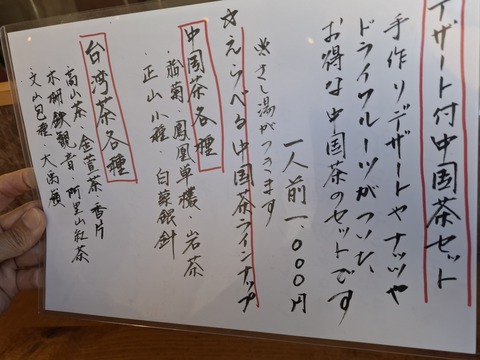 デザート付中国茶セット
手作りデザートやナッツや
ドライフルーツがついた、
お得な中国茶のセットです
一人前一、〇〇〇円
※さし湯がつきます
☆えらべる中国茶ラインナップ
中国茶各種
・胎菊・鳳凰単欉・岩茶
・正山小種・白毫銀針
台湾茶各種
・高山茶・金萱茶・香片
・木柵鉄観音・阿里山紅茶
・文山包種・大禹嶺